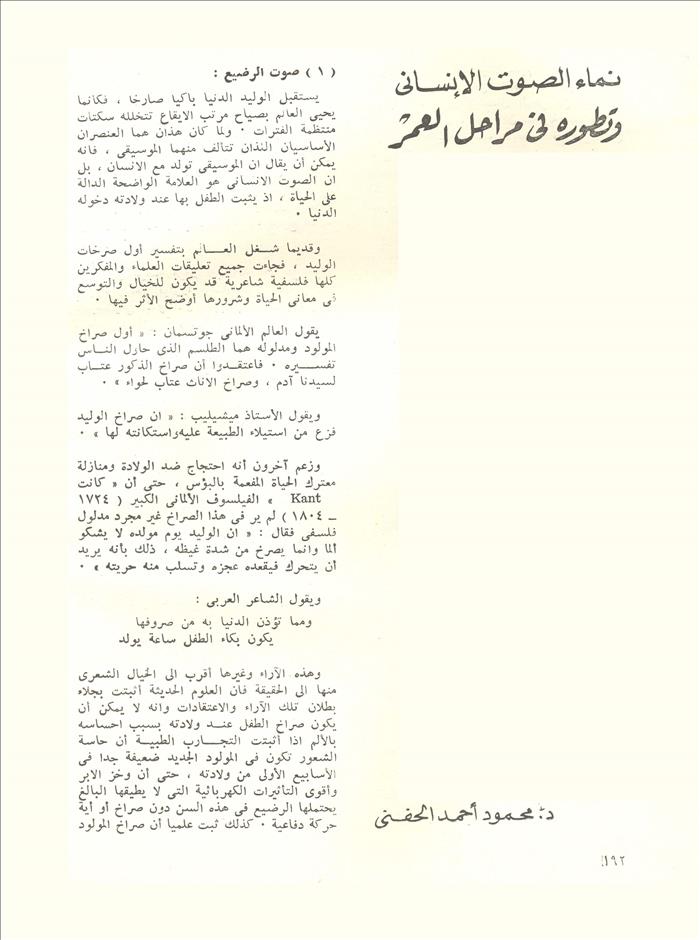 نماء الصوت الإنسانى
وتطوره فى مراحل العمر
( ١ ) صوت الرضيع :
يستقبل الوليد الدنيا باكيا صارخا ، فكانما
يحيى العالم بصياح مرتب الايقاع تتخلله سكتات
منتظمة الفترات ٠ ولما كان هذان هما العنصران
الأساسيان اللذان تتالف منهما الموسيقى ، فانه
يمكن أن يقال ان الموسيقى تولد مع الانسان ، بل
ان الصوت الانسانى هو العلامة الواضحة الدالة
على الحياة ، اذ يثبت الطفل بها عند ولادته دخوله
الدنيا ٠
وقديما شغل العالم بتفسير أول صرخات
الوليد ، فجاءت جميع تعليقات العلماء والمفكرين
كلها فلسفية شاعرية قد يكون للخيال والتوسع
فى معانى الحياة وشرورها أوضح الأثر فيها ٠
يقول العالم الألمانى جوتسمان : « أول صراخ
المولود ومدلوله هما الطلسم الذى حاول الناس
تفسيره ٠ فاعتقدوا أن صراخ الذكور عتاب
لسيدنا آدم ، وصراخ الاناث عتاب لحواء » ٠
ويقول الأستاذ ميشيليب : « ان صراخ الوليد
فزع من استيلاء الطبيعة عليه واستكانته لها » ٠
وزعم آخرون أنه احتجاج ضد الولادة ومنازلة
معترك الحياة المفعمة بالبؤس ، حتى أن « كانت
Kant » الفيلسوف الألمانى الكبير ( ١٧٢٤
ـ ١٨٠٤ ) لم ير فى هذا الصراخ غير مجرد مدلول
فلسفى فقال : « ان الوليد يوم مولده لا يشكو
ألما وانما يصرخ من شدة غيظه ، ذلك بأنه يريد
أن يتحرك فيقعده عجزه وتسلب منه حريته » ٠
ويقول الشاعر العربى :
ومما تؤذن الدنيا به من صروفها
يكون بكاء الطفل ساعة يولد
وهذه الآراء وغيرها أقرب الى الخيال الشعرى
منها الى الحقيقة فان العلوم الحديثة أثبتت بجلاء
بطلان تلك الآراء والاعتقادات وانه لا يمكن أن
يكون صراخ الطفل عند ولادته بسبب احساسه
بالألم اذا أثبتت التجارب الطبية أن حاسة
الشعور تكون فى المولود الجديد ضعيفة جدا فى
الأسابيع الأولى من ولادته ، حتى أن وخز الابر
وأقوى التأثيرات الكهربائية التى لا يطيقها البالغ
يحتملها الرضيع فى هذه السن دون صراخ أو أية
حركة دفاعية ٠ كذلك ثبت علميا أن صراخ المولود
د. محمود أحمد الحفنى
١٩٢